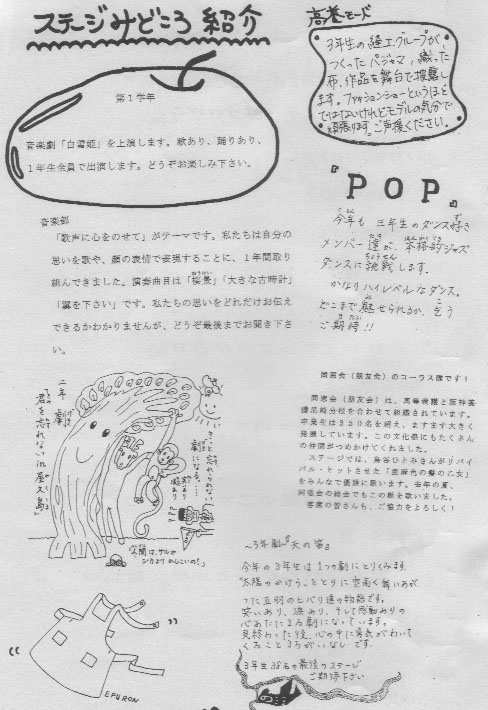 ステージみどころ紹介
第1学年
音楽劇「白雪姫」を上演します。歌あり、踊りあり、
1年生全員で出演します。どうぞお楽しみ下さい。
高養モード
3年生の縫工グループが、
つくったパジャマ、織った
布、作品を舞台で披露し
ます。ファッションショーというほど
ではないけれどモデルの気分で
頑張ります。ご声援ください。
音楽部
「歌声に心をのせて」がテーマです。私たちは自分の
思いを歌や、顔の表情で表現することに、1年間取り
組んできました。演奏曲目は「桜景」「大きな古時計」
「翼を下さい」です。私たちの思いをどれだけお伝え
できるかわかりませんが、どうぞ最後までお聞き下さ
い。
『POP』
今年も三年生のダンス好き
メンバー達が、本格的ジャズ
ダンスに挑戦します。
かなりハイレベルなダンス。
どこまで魅せられるか、乞う
ご期待!!
同窓会(朋友会)のコーラス隊です!
同窓会(朋友会)は、高等養護と阪神養
護尼崎分校を合わせて組織されています。
卒業生は350名を超え、ますます大きく
発展しています。この文化祭にもたくさん
の仲間がつめかけてくれました。
ステージでは、島谷ひとみさんがリバイ
バル・ヒットさせた「亜麻色の髪の乙女」
をみんなで優雅に歌います。去年の夏、
同窓会の総会でもこの歌を歌いました。
客席の皆さんも、ご協力をよろしく!
二年 劇
「君を忘れない in 屋久島」
きっと忘れられない
劇になる。
歌あり
踊りあり
人間は、サルや
シカよりめしこいの?
EPURON
~3年劇~『天の笛』
今年の3年生は1つの劇にとりくみます。
"太陽のかけら"をとりに空高く舞いあが
った五羽のヒバリ達の物語です。
笑いあり、涙あり、そして感動ありの
心あたたまる劇になっています。
見終わった後、心の中に勇気がわいて
くることまちがいなしです。
3年生38名の最後のステージ
ご期待下さい